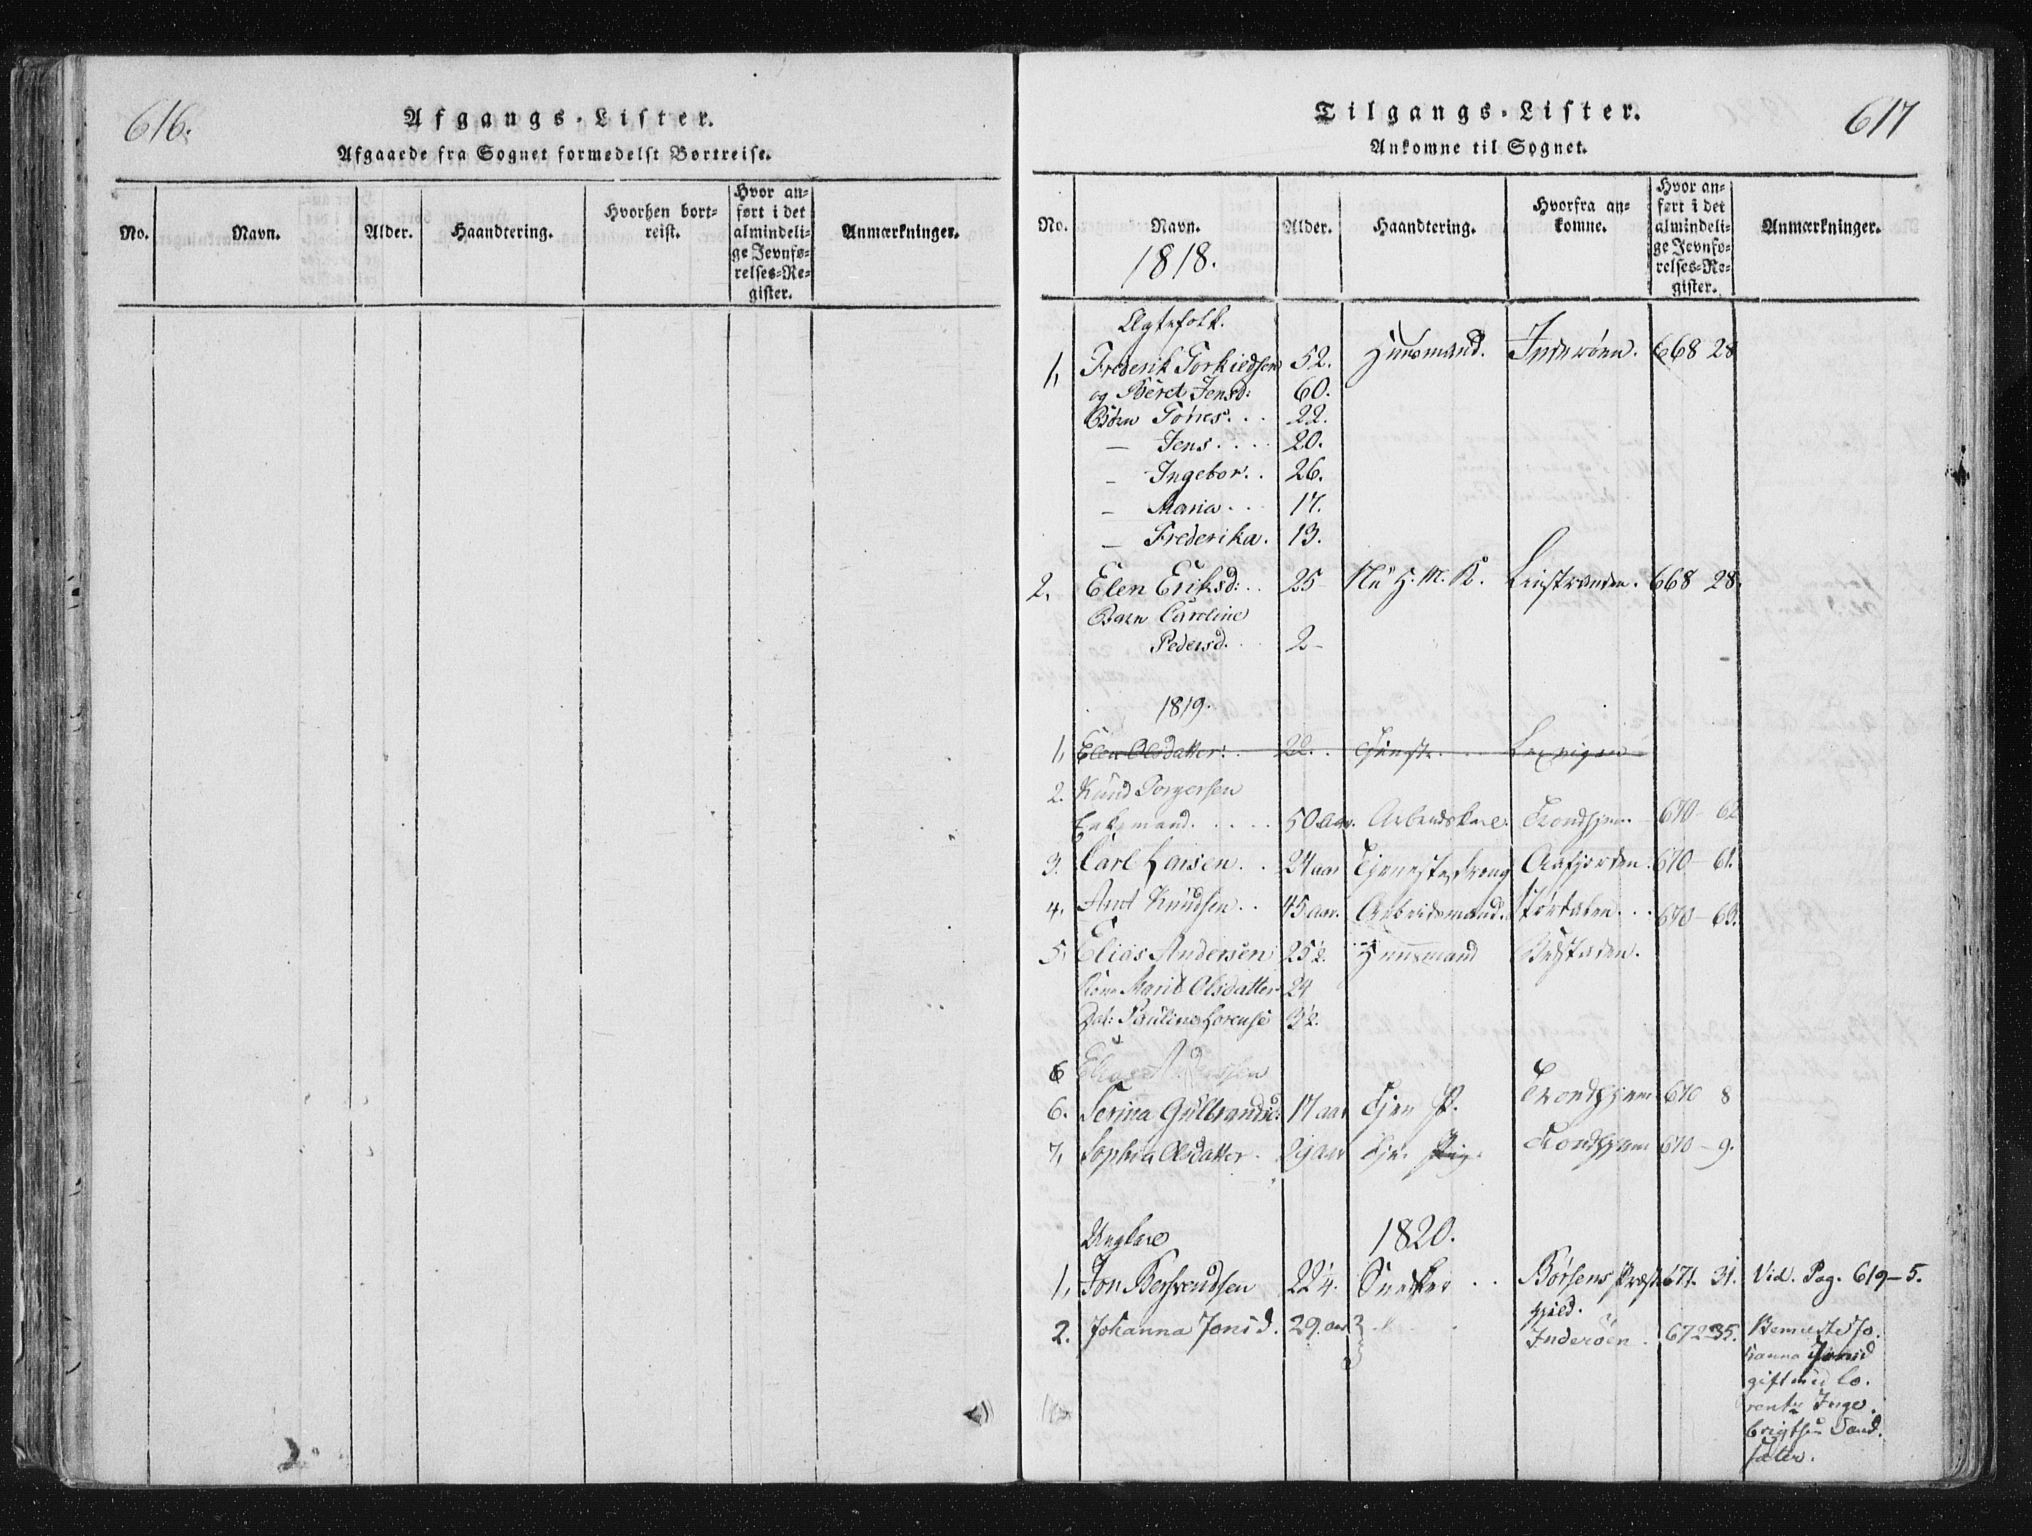 616.
Afgangs-Lister.
Afgaaede fra Sognet formedelst Bortreise.
No. Navn. Alder. Haandtering. Hvorhen bort-reist. Hvor an-ført i det almindeli-ge Jevnfø-relses-Re-gister. Anmærkninger.
617
Tilgangs-Lister.
Ankomne til Sognet.
No. Navn. Alder. Haandtering. Hvorfra an-komne. Hvor an-ført i det almindeli-ge Jevnfø-relses-Re-gister. Anmærkninger.
1818.
Ægtefolk.
1, Frederik Torkildsen 52. Huusmand. Inderöen. 668 28
og Beret Jensd: 60.
Börn Tönes... 22.
— Jens.... 20.
— Ingebor.. 26.
— Maria... 17.
— Frederika. 13.
2. Elen Eriksd:.. 25 H. M. K. Leinstranden. 668 28.
Barn Caroline
Pedersd... 2-
1819.
1, Elen Olsdatter:.. 22.. Tjeneste....
2. Knud Torgersen
Enkemand..... 50 aar. Trondhjem. 670- 62
3. Carl Larsen... 24 aar Tjenestedreng Aafjorden. 670- 61.
4, Arnt Knudsen.. 45 aar. Arbeidsmand. Stördalen... 670- 63.
5, Elias Andersen 25½. Huusmand
Kone Marit Olsdatter 24
Dat: Pauline Lorense ½.
6 Elias Andersen
6. Serina Gulbrandsd: 17 aar Tjen P. Trondhjem 670 8
7, Sophia Olsdatter. 29 aar Tjen. Pig. Trondhjem 670-9.
Ungkarl 1820.
1, Jon Bersvendsen 22¼. Snedker.. Börsens Præst 671. 31. Vid. Pag. 619-5.
gjeld.
2. Johanna Jonsd. 29. aar Inderöen. 672 35. Bemeldte Jo.
hanna Jonsd
gift med Lo.
rentz Inge.
brigtsen Sand.
sæter.